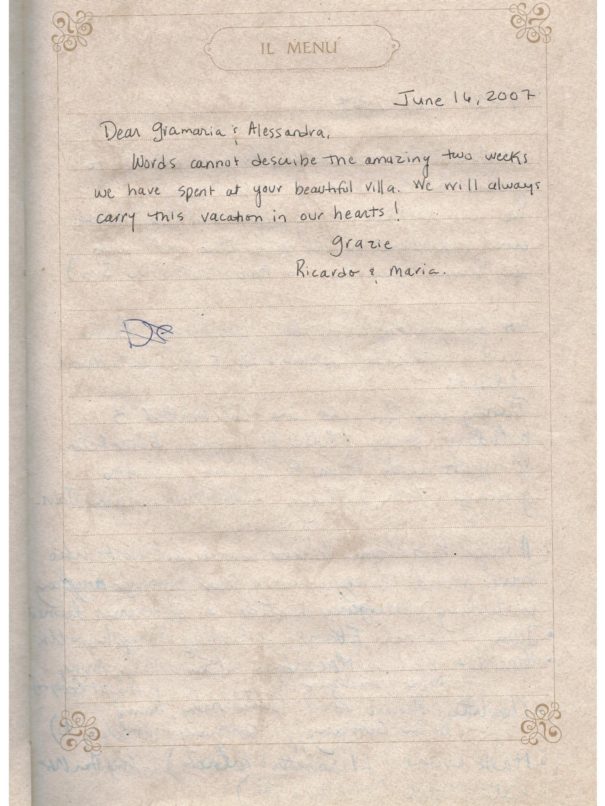 IL MENÚ
June 16, 2007
Dear Gramaria & Alessandra,
Words cannot describe the amazing two weeks
we have spent at your beautiful villa. We will always
carry this vacation in our hearts!
Grazie
Ricardo & Maria.